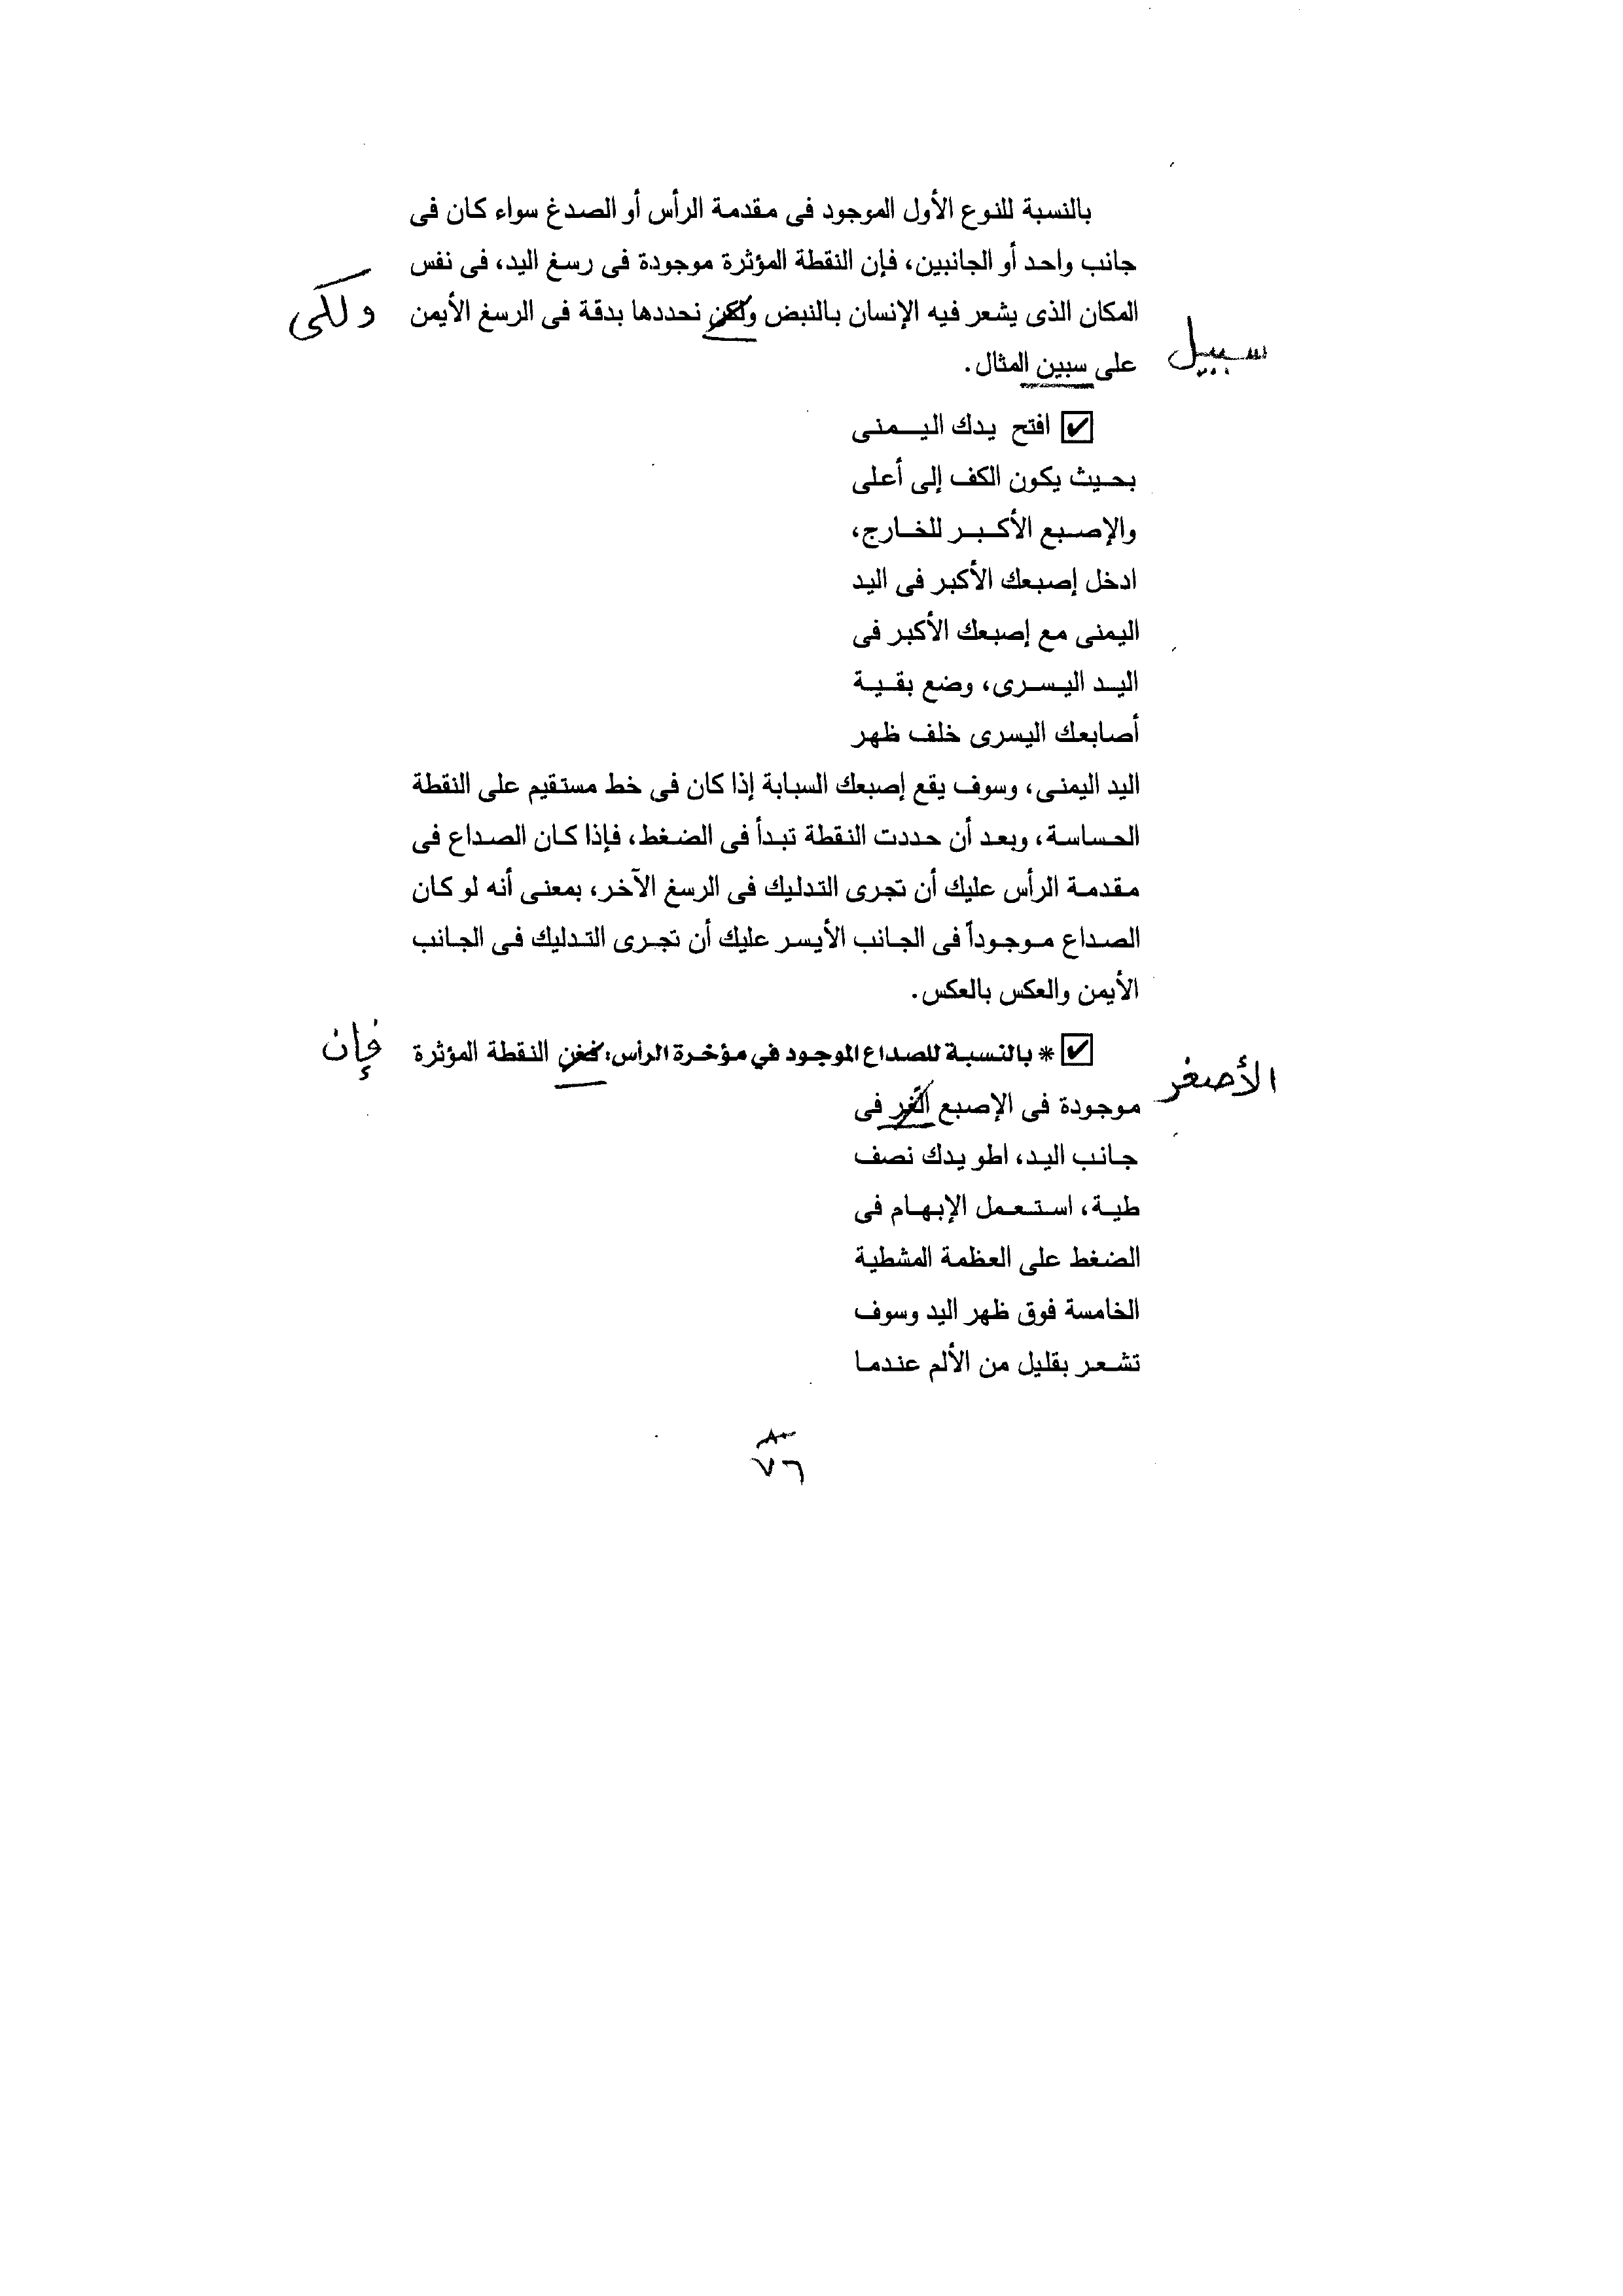 بالنسبة للنوع الأول الموجود فى مقدمة الرأس أو الصدغ سواء كان فى
جانب واحد أو الجانبين، فإن النقطة المؤثرة موجودة فى رسغ اليد، فى نفس
المكان الذى يشعر فيه الإنسان بالنبض ولكن نحددها بدقة فى الرسغ الأيمن
ولكى
على سبين المثال.
سبيل
☑ افتح يدك اليمنى
بحيث يكون الكف إلى أعلى
والإصبع الأكبر للخارج،
ادخل إصبعك الأكبر فى اليد
اليمنى مع إصبعك الأكبر فى
اليد اليسرى، وضع بقية
أصابعك اليسرى خلف ظهر
اليد اليمنى، وسوف يقع إصبعك السبابة إذا كان فى خط مستقيم على النقطة
الحساسة، وبعد أن حددت النقطة تبدأ فى الضغط، فإذا كان الصداع فى
مقدمة الرأس عليك أن تجرى التدليك فى الرسغ الآخر، بمعنى أنه لو كان
الصداع موجوداً فى الجانب الأيسر عليك أن تجرى التدليك فى الجانب
الأيمن والعكس بالعكس.
☑ * بالنسبة للصداع الموجود في مؤخرة الرأس: فغن النقطة المؤثرة
فإن
موجودة فى الإصبع فى
الأصغر
جانب اليد، اطو يدك نصف
طية، استعمل الإبهام فى
الضغط على العظمة المشطية
الخامسة فوق ظهر اليد وسوف
تشعر بقليل من الألم عندما
٧٦